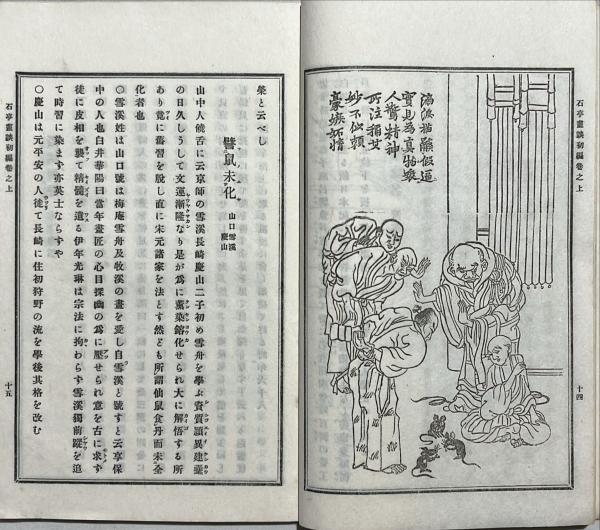 石亭畫談初編卷之上
十四
實見為真物蠑
人驚精神
豪
石亭畫談初編卷之上
十五
榮と云べし
譬鼠未化
山口雪溪
慶山
山中人饒舌に云京師の雪溪長崎慶山二子初め雪舟を學ぶ資質頴異建櫜
の日久しうして文運漸隆なり是が爲に薫染鎔化せられ大に解悟する所
あり竟に舊習を脱し直に宋元諸家を法とす然ども所謂仙鼠食丹而未全
化者也
〇雪溪姓は山口號は梅庵雪舟及牧溪の畫を愛し自雪溪と號すと云享保
中の人也白井華陽曰當年畫匠の心目探幽の爲に壓せられ意を古に求ず
徒に皮相を襲て精髓を遺る伊年光琳は宗法に拘わらず雪溪獨前蹤を追
て時習に染まず亦英士ならずや
〇慶山は元平安の人徒て長崎に住初狩野の流を學後其格を改む